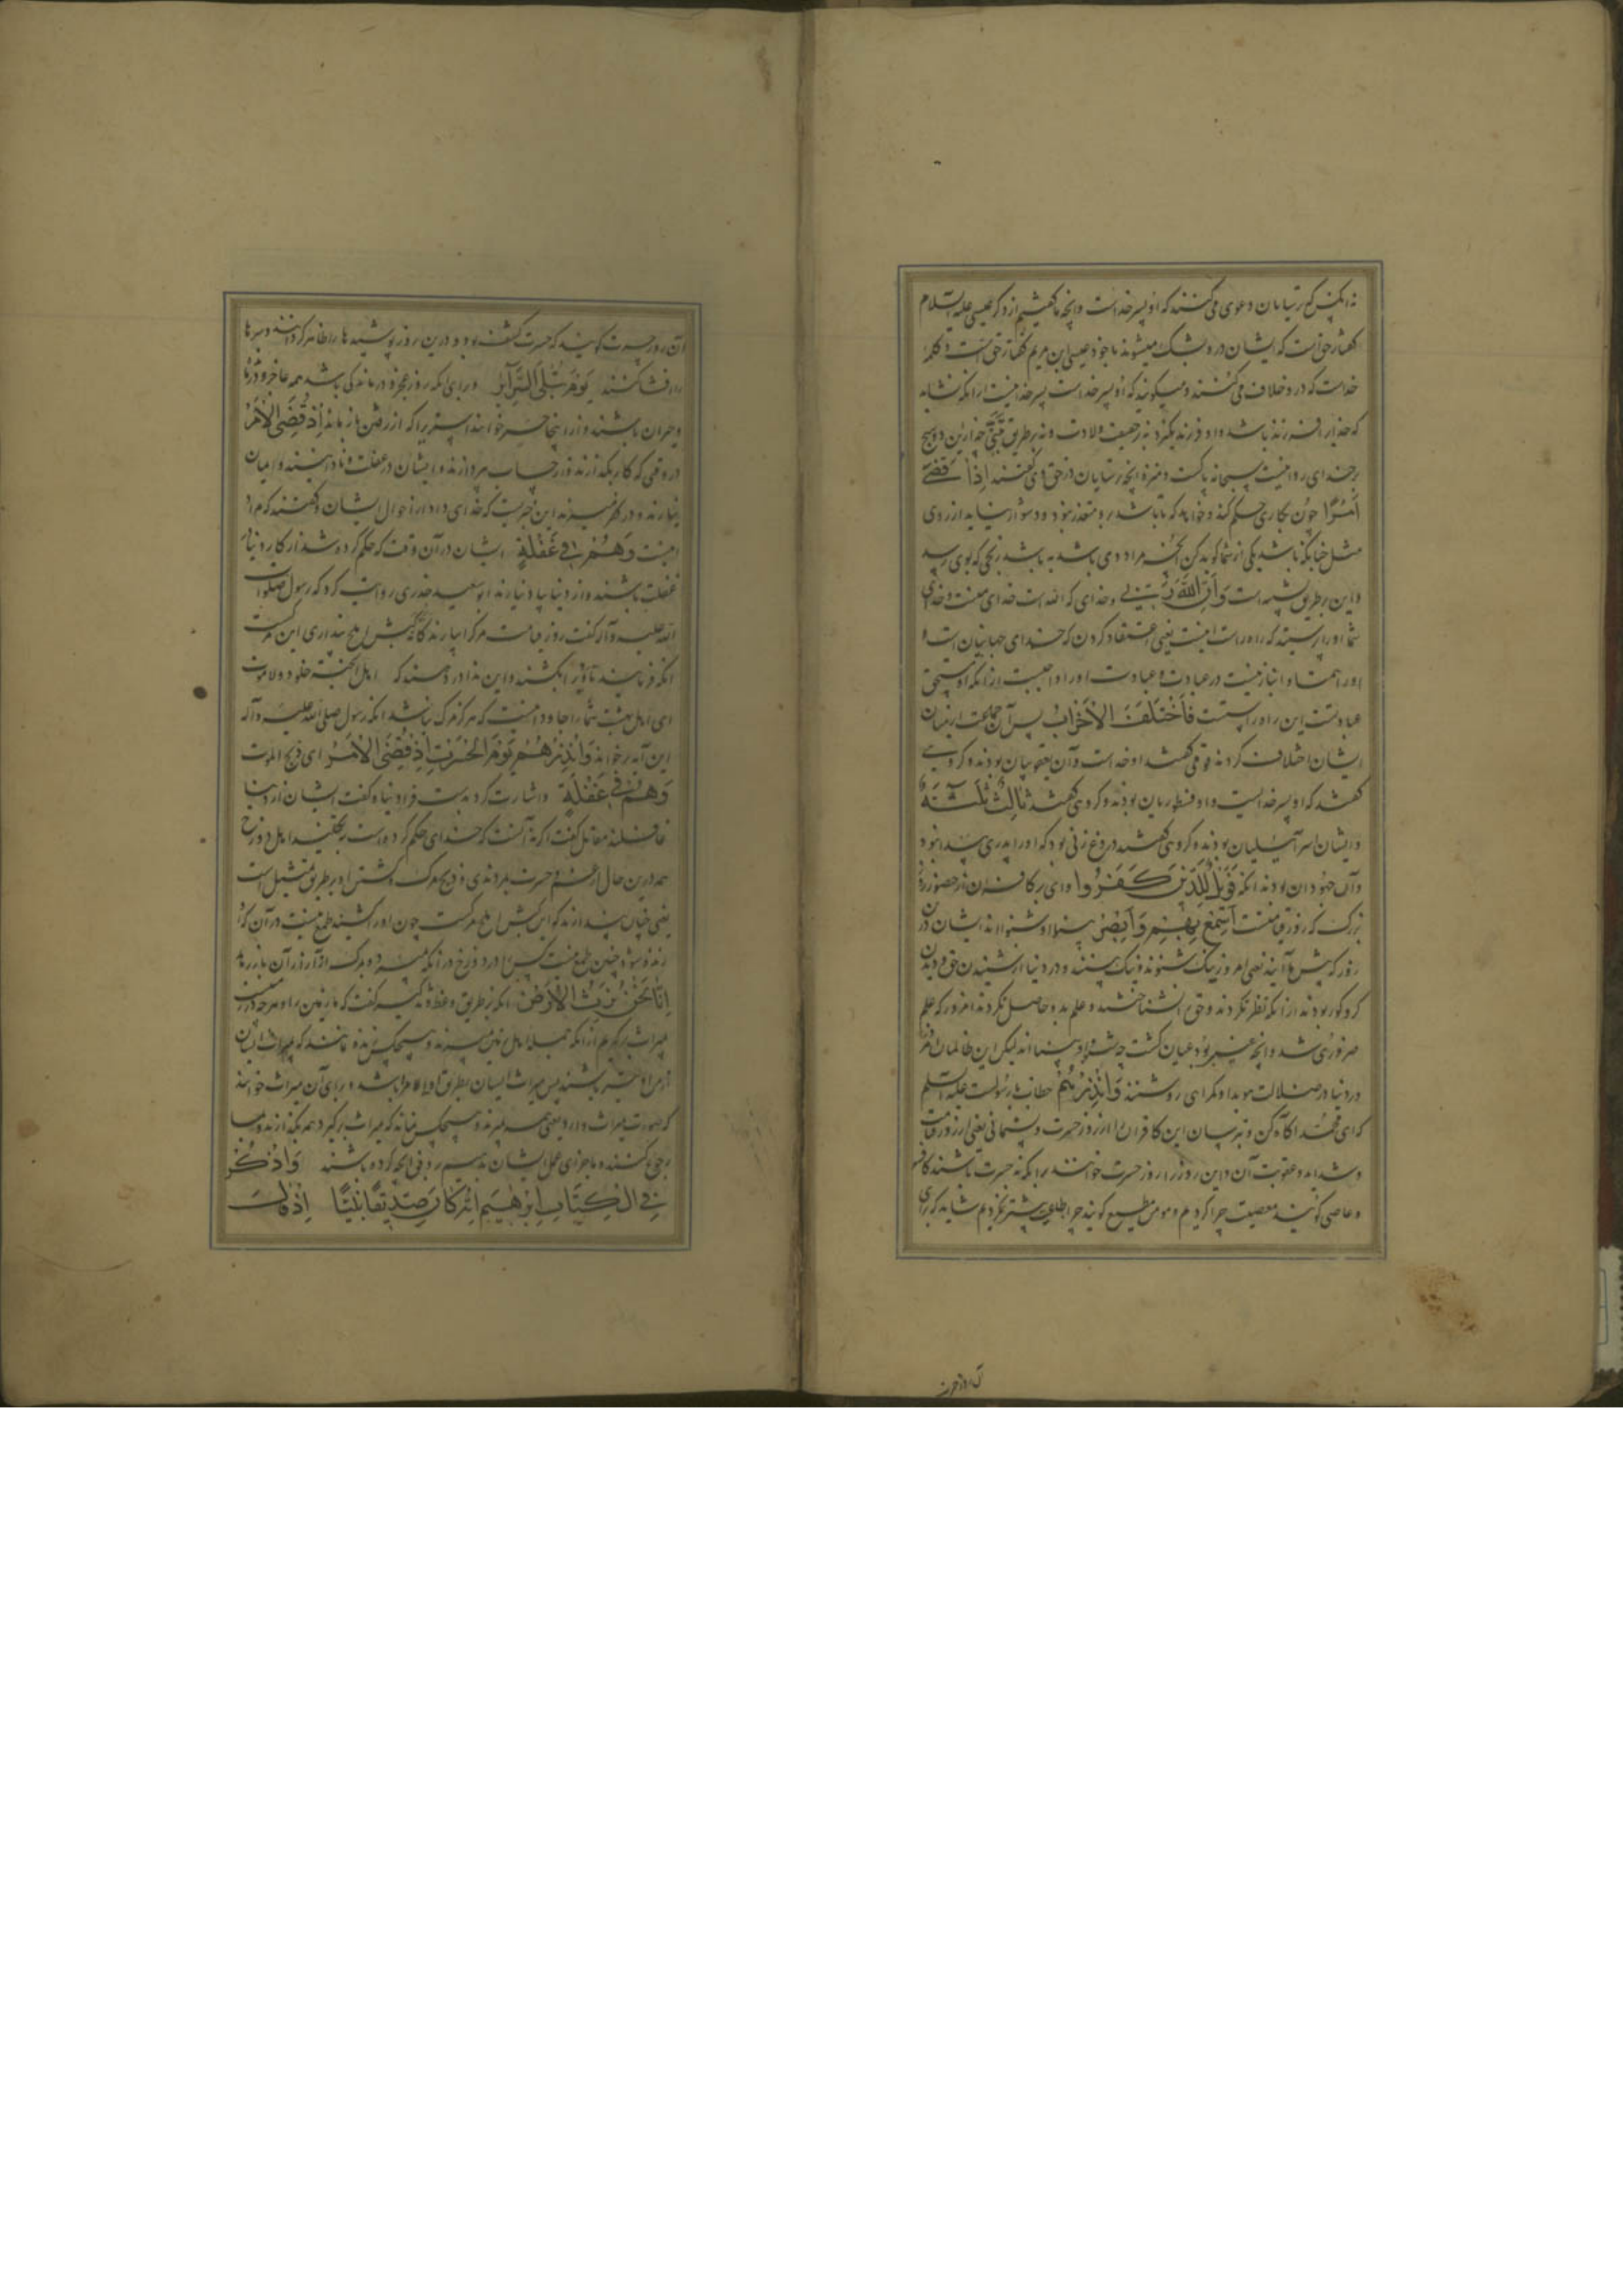 نه آنکس که ترسایان دعوی می‌کنند که او پسر خداست و آنچه ما گفتیم از ذکر عیسی علیه السلام
گفتار حق است که ایشان در و بشک میشوند یا خود عیسی ابن مریم گفتار حق است و کلمه
خداست که در و خلاف می‌کنند و میگویند که او پسر خداست پسر خدا نیست از آنکه نشاید
که خدایرا فرزند باشد و او فرزند گیرد نه بر حقیقت ولادت و نه بر طریق تبنی چه ازین دو هیچ
بر خدای روا نیست سبحانه پاکست و منزه از آنچه ترسایان در حق وی گفتند اِذَا قَضٰی
اَمْرًا چون بکاری حکم کند و خواهد که تا باشد برو متعذر نبود و دشوار نیاید از روی
مثل چنانکه باشد یکی از شما گوید کن آنچه مراد وی باشد به باشد رنجی که بوی رسد
و این بر طریق تشبیه است وَ اِنَّ اللّٰهَ رَبّی و خدای که الله است خدای منست و خدای
شما او را پرستید که راه راست اینست یعنی اعتقاد کردن که خدای جهانیان است و
او را همتا و انباز نیست در عبادت و عبادت او را واجبست از آنکه او مستحق
عبادتست این راه راستست فَاخْتَلَفَ الْاَحْزَابُ پس آن جماعت از میان
ایشان اختلاف کردند قومی گفتند او خداست و آن یعقوبیان بودند و گروهی
گفتند که او پسر خداست و او نسطوریان بودند و گروهی گفتند ثَالِثُ ثَلٰثَةٍ
و ایشان اسرائیلیان بودند و گروهی گفتند دروغ‌زنی بود که او را پدری پیدا نبود
و آن جهودان بودند آنکه فَوَيْلٌ لِلَّذِينَ كَفَرُوا وای بر کافران از حضور روز
بزرگ که روز قیامتست اَسْمِعْ بِهِمْ وَاَبْصِرْ بینوا و شنوا اند ایشان در آن
روز که پیش ما آیند یعنی امروز نیک شنوند و نیک بینند و در دنیا از شنیدن حق و دیدن
کر و کور بودند از آنکه نظر نکردند و حق را نشناختند و علم بدو حاصل نکردند امروز که علم
ضروری شد و آنچه خبر بود عیان گشت چه شنوا و بینا اند لیکن این ظالمان امروز
در دنیا در ضلالت هویدا و گمراهی روشنند وَ اَنْذِرْهُمْ خطاب با رسولست علیه السلم
که ای محمد آگاه کن و بترسان این کافران را از روز حسرت و پشیمانی یعنی از روز قیامت
و شداید و عقوبت آن و این روز را روز حسرت خوانند برای آنکه به حسرت باشند کافر
و عاصی گویند معصیت چرا کردیم و مومن مطیع گوید چرا طاعت بیشتر نکردیم شاید که برای
آن روز حسرت
آن روز حسرت گویند که حسرت کشف بود و درین روز پوشیده ها را ظاهر کردانند و سرها
را افشا کنند یَوْمَ تُبْلَی السَّرَائِرُ و برای آنکه روز عجز و درماندگی باشد همه عاجز و درمانده
و حیران باشند و از اینجا حسیر خوانند اشتریرا که از رفتن باز ماند اِذْ قُضِیَ الْاَمْرُ
در وقتی که کار بگذارند و از حساب بپردازند و ایشان در غفلت و نادانیند و ایمان
نیارند و در کفر میرند این خبریست که خدای داد از احوال ایشان و گفتند که مراد
اینست وَهُمْ فِي غَفْلَةٍ ایشان در آن وقت که حکم کرده شد از کار دنیا در
غفلت باشند و از دنیا با دنیا رند ابو سعید خدری روایت کرد که رسول صلوات
الله علیه و آله گفت روز قیامت مرگ را بیارند کانه کبش املح پنداری این مرگست
آنکه فرمایند تا ویرا بکشند و این ندا در دهند که اهل الجنة خلود و لا موت
ای اهل بهشت شما را جاودانیست که هرگز مرگ نباشد آنکه رسول صلی الله علیه و آله
این آیه بر خواند وَ اَنْذِرْهُمْ يَوْمَ الْحَسْرَةِ اِذْ قُضِيَ الْاَمْرُ ای ذبح الموت
وَهُمْ فِي غَفْلَةٍ و اشارت کرد بدست فرا دنیا و گفت ایشان از دنیا
غافلند مقاتل گفت اگر نه آنست که خدای حکم کرده است بتخلید اهل دوزخ
همه درین حال از غم و حسرت بمردندی و ذبح مرگ و کشتن او بر طریق تمثیل است
یعنی چنان پندارند که این کبش املح مرگست چون او را کشتند طمع نیست در آن که او
زنده شود چنین طمع نیست کس را در دوزخ در آنکه میرد و به مرگ از آزار آن باز رهد
اِنَّا نَحْنُ نَرِثُ الْاَرْضَ آنکه بر طریق وعظ و تذکیر گفت که ما زمین را و هر چه در زمینست
میراث برگیریم از آنکه جمله اهل زمین میرند و هیچکس زنده نماند که میراث ایشان
از مرا و خیر باشند پس میراث ایشان بطریق اولی ما را باشد و برای آن میراث خواند
که صورت میراث دارد یعنی همه میرند و هیچکس نماند که میراث برگیرد همه بگذارند و با ما
رجوع کنند و ما جزای عمل ایشان بدهیم بر وفق آنچه کرده باشند وَاذْكُرْ
فِي الْكِتَابِ اِبْرٰهِيمَ اِنَّهُ كَانَ صِدِّيقًا نَبِيًّا اِذْ قَالَ